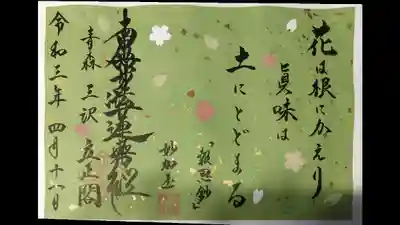 花は根にかえり
眞味は
土にとどまる
「報恩鈔」
南無妙法蓮華経
青森 三沢 立正閣
令和三年 四月十八日